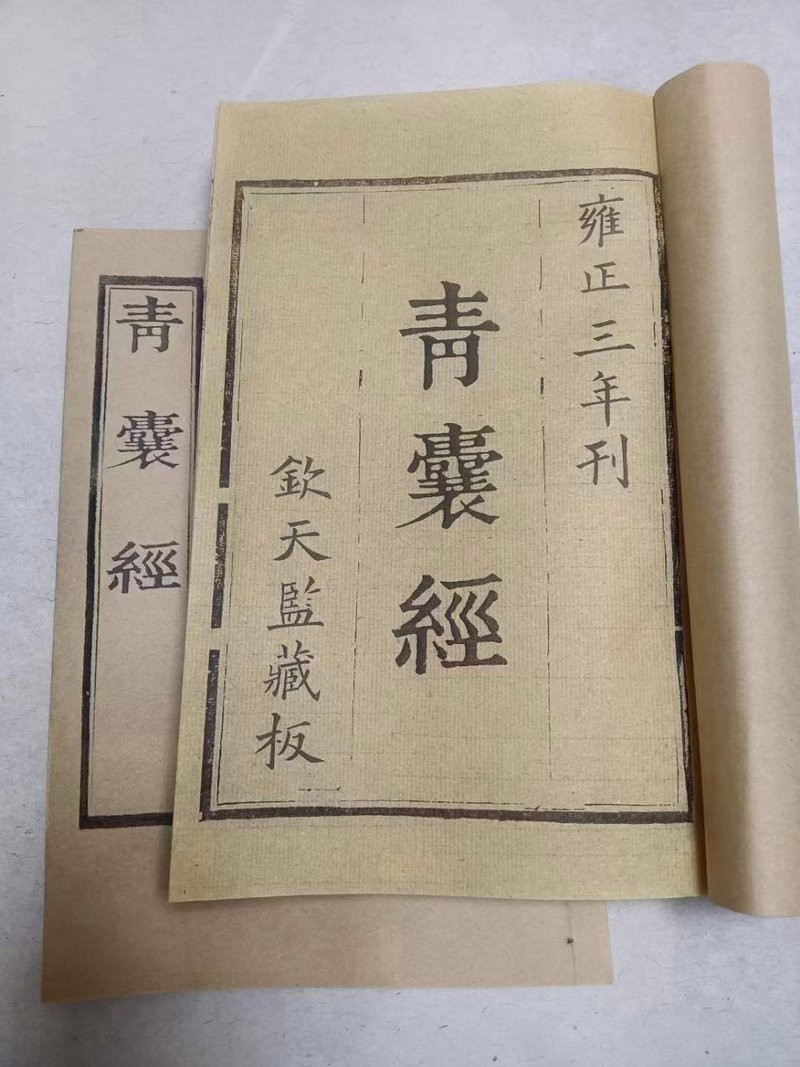 雍正三年刊
青囊經
欽天監藏板
青囊經